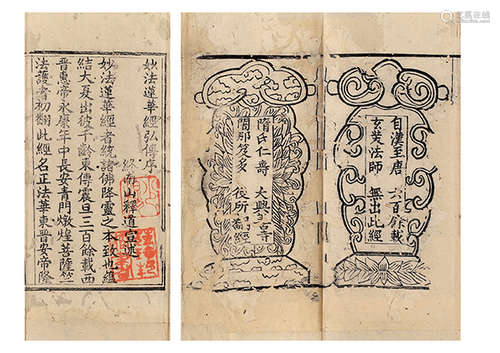 妙法蓮華經弘傳序
終南山釋道宣述
妙法蓮華經者統諸佛降靈之本致也蘊
結大夏出彼千齡東傳震旦三百餘載西
晉惠帝永康年中長安青門燉煌菩薩竺
法護者初翻此經名正法華東晉安帝隆
自漢至唐 六百餘載
玄奘法師 無出此經
隋氏仁壽 大興善寺
闍那笈多 後所翻經